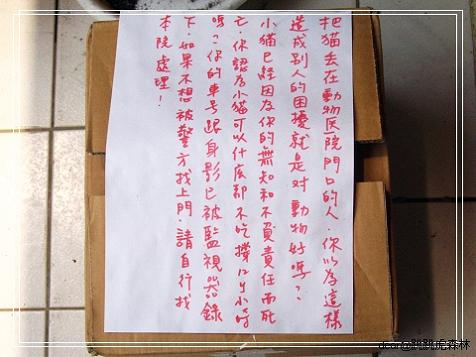 把猫丟在動物医院門口的人.你以為這樣
造成別人的困擾就是对動物好嗎?
小猫已經因為你的無知和不負責任而死
亡.你認為小猫可以什底都不吃撐12小時
嗎?你的車号跟身影已被監視器錄
下.如果不想被警方找上門.請自行找
本院處理!
dean@跳跳虎森林